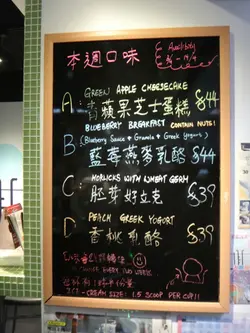 本週口味
A: GREEN APPLE CHEESECAKE
青蘋果芝士蛋糕 $44
BLUEBERRY BREAKFAST CONTAIN NUTS!
B (Blueberry Sauce & Granola & Greek Yogurt)
藍莓燕麥乳酪 $44
C: HORLICKS WITH WHEAT GERM
胚芽好立克 $39
D PEACH GREEK YOGURT
香桃乳酪 $39
EVERY TWO WEEKS
ICE-CREAM SIZE: 1.5 SCOOP PER CUP!!